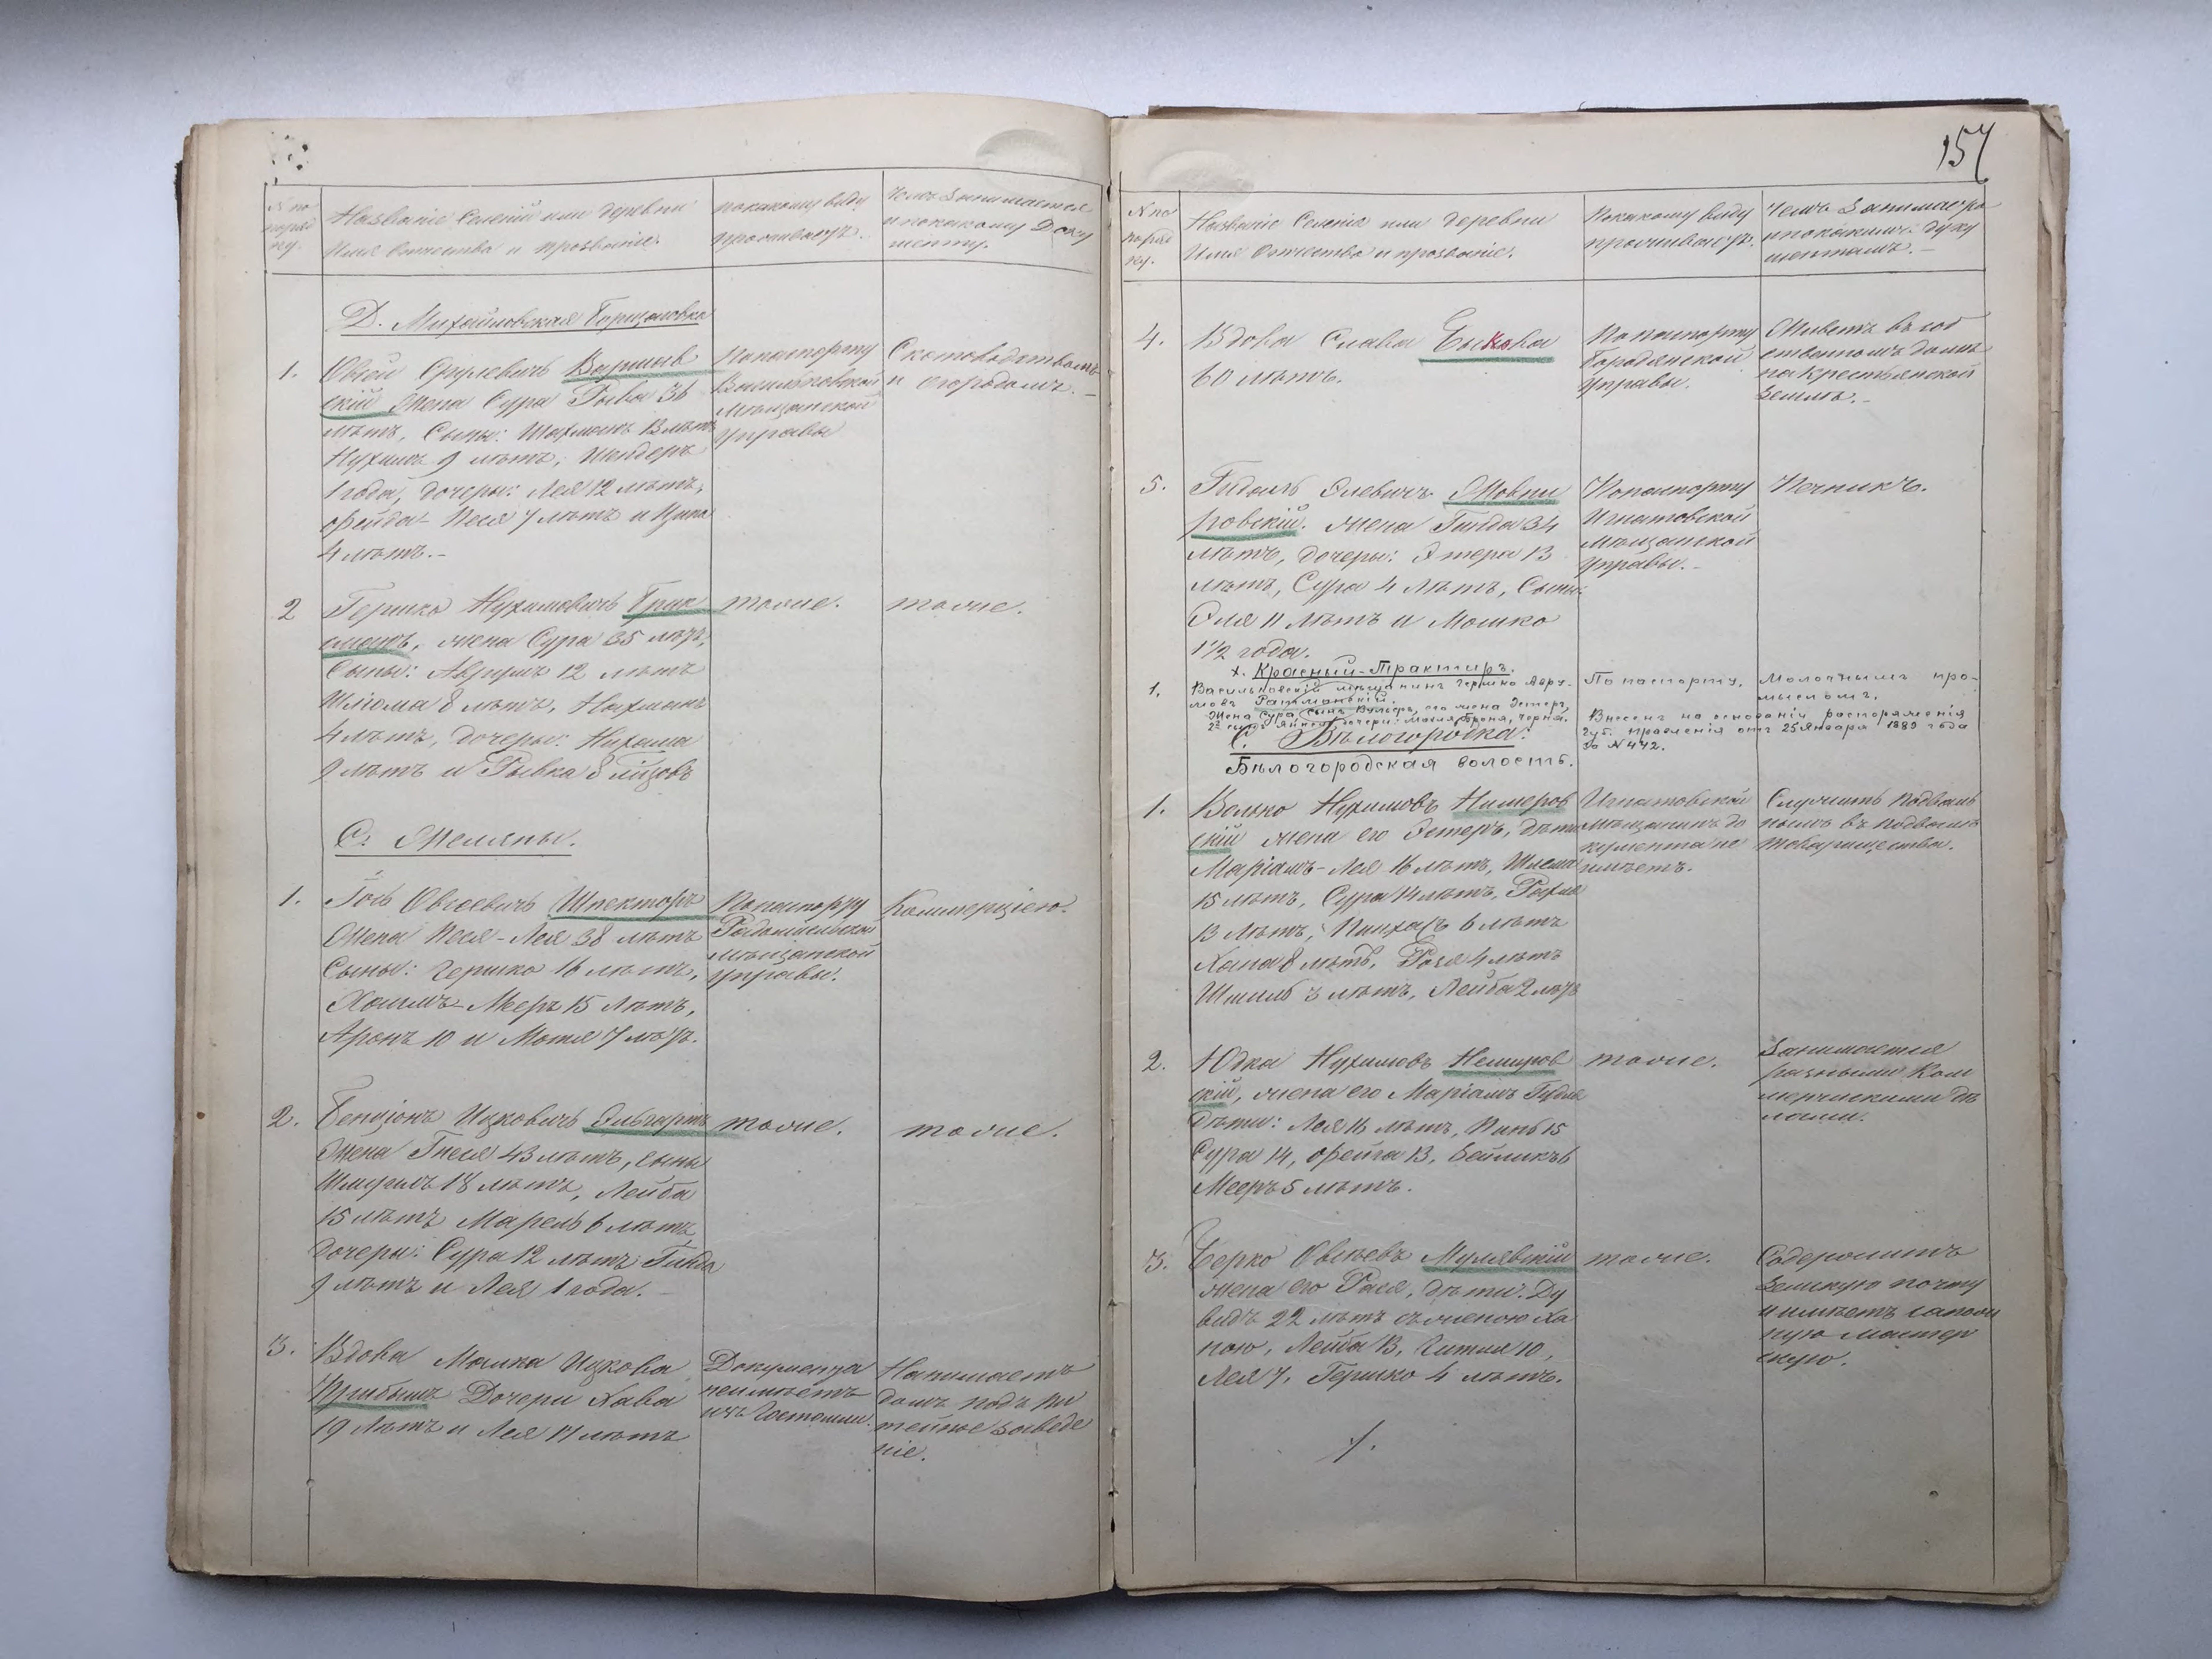 № по поряд ку.
Названіе Селеній или деревни
Имя Отчество и прозваніе.
по какому виду
проживаетъ.
Чемъ Занимается
и по какому Доку
менту.
Д. Михайловская Борщаговка
1.
Овсей Срулевичъ Варшав
скій Жена Сура Рыва 36
лѣтъ, Сыны: Нахманъ 13 лѣтъ
Нухимъ 9 лѣтъ,
1 года, дочеры: Лея 12 лѣтъ,
Фрейда Песя 7 лѣтъ и Ципа
4 лѣтъ.-
По паспорту
Васильковской
Мѣщанской
Управы
Скотоводствомъ
и огородомъ.-
2
Гершко Нухимовичъ Брик
манъ, жена Сура 35 лѣтъ,
Сыны: Аврумъ 12 лѣтъ
Шліома 8 лѣтъ, Нахманъ
4 лѣтъ, дочеры: Нихама
9 лѣтъ и Рывка 8 міцовъ
тоже.
тоже.
С. Жиляны.
1.
Іось Овсеевичъ Шпекторъ
Жена Песя-Лея 38 лѣтъ
Сыны: Гершко 16 лѣтъ,
Хаимъ-Мееръ 15 лѣтъ,
Аронъ 10 и Мотя 7 лѣтъ.
По паспорту
Радомысльской
мѣщанской
управы.
Коммерціею.
2.
Бенціонъ Ицковичъ
Жена Гнеся 43 лѣтъ, сыны
Шмуилъ 18 лѣтъ, Лейба
15 лѣтъ Марель 6 лѣтъ
дочеры: Сура 12 лѣтъ Гитля
9 лѣтъ и Лея 1 года.-
тоже.
тоже.
3.
Вдова Малка Ицкова
Прибышъ Дочери Хава
19 лѣтъ и Лея 17 лѣтъ
Документа
неимѣетъ
изъ Гостомля.
Нанимаетъ
домъ подъ пи
тейное заведе
ніе.
157
№ по поряд ку.
Названіе Селенія или деревни
Имя Отчество и прозваніе.
По какому виду
проживаетъ.
Чемъ Занимается
и по какимъ доку
ментамъ.-
4.
Вдова Слава Быкова
60 лѣтъ.
По паспорту
Бородянской
управы.
Живетъ въ соб
ственномъ домѣ
на Крестьянской
Землѣ.-
5.
Гидаль Элевичъ
ровскій. жена Гитля 34
лѣтъ, дочеры: Этера 13
лѣтъ, Сура 4 лѣтъ, Сыны:
Эля 11 лѣтъ и Мошко
1 1/2 года.
По паспорту
Игнатовской
Мѣщанской
управы.-
Печникъ.
х. Красный-Трактиръ.
1.
Васильковскій мѣщанинъ Гершко Авру-
мовъ Ратманскій.
Жена Сура, сынъ Вольфъ, его жена Эстеръ,
дочери: Маня, Броня, Черня.
По паспорту.
Молочнымъ про-
мысломъ.
Внесенъ на основаніи распоряженія
Губ. правленія отъ 25 Января 1889 года
за № 442.
С. Бѣлогородка.
Бѣлогородская волость.
1.
Волько Нухимовъ Нимеров
скій жена его Эстеръ, дѣти
Маріамъ-Лея 16 лѣтъ, Шлема
15 лѣтъ, Сура 14 лѣтъ, Рухля
13 лѣтъ, Пинхасъ 6 лѣтъ
Хана 8 лѣтъ, Рося 4 лѣтъ
Шмиль 3 лѣтъ, Лейба 2 лѣтъ
Игнатовскій
мѣщанинъ до
кумента не
имѣетъ.
Служитъ подваль
нымъ въ подвалѣ
товарищества.
2.
Юдка Нухимовъ Немиров
скій, жена его Маріамъ
дѣти: Лея 16 лѣтъ, 15
Сура 14, Фейга 13, Бейликъ 6
Мееръ 5 лѣтъ.
тоже.
Занимается
разными Ком
мерческими дѣ
лами.
3.
Берко Овсѣевъ Мулявскій
жена его Рася, дѣти: Ду
видъ 22 лѣтъ съ женою Ха
ною, Лейба 13, Гитля 10,
Лея 7, Гершко 4 лѣтъ.
тоже.
Содержитъ
Земскую почту
и имѣетъ сапож
ную мастер
скую.